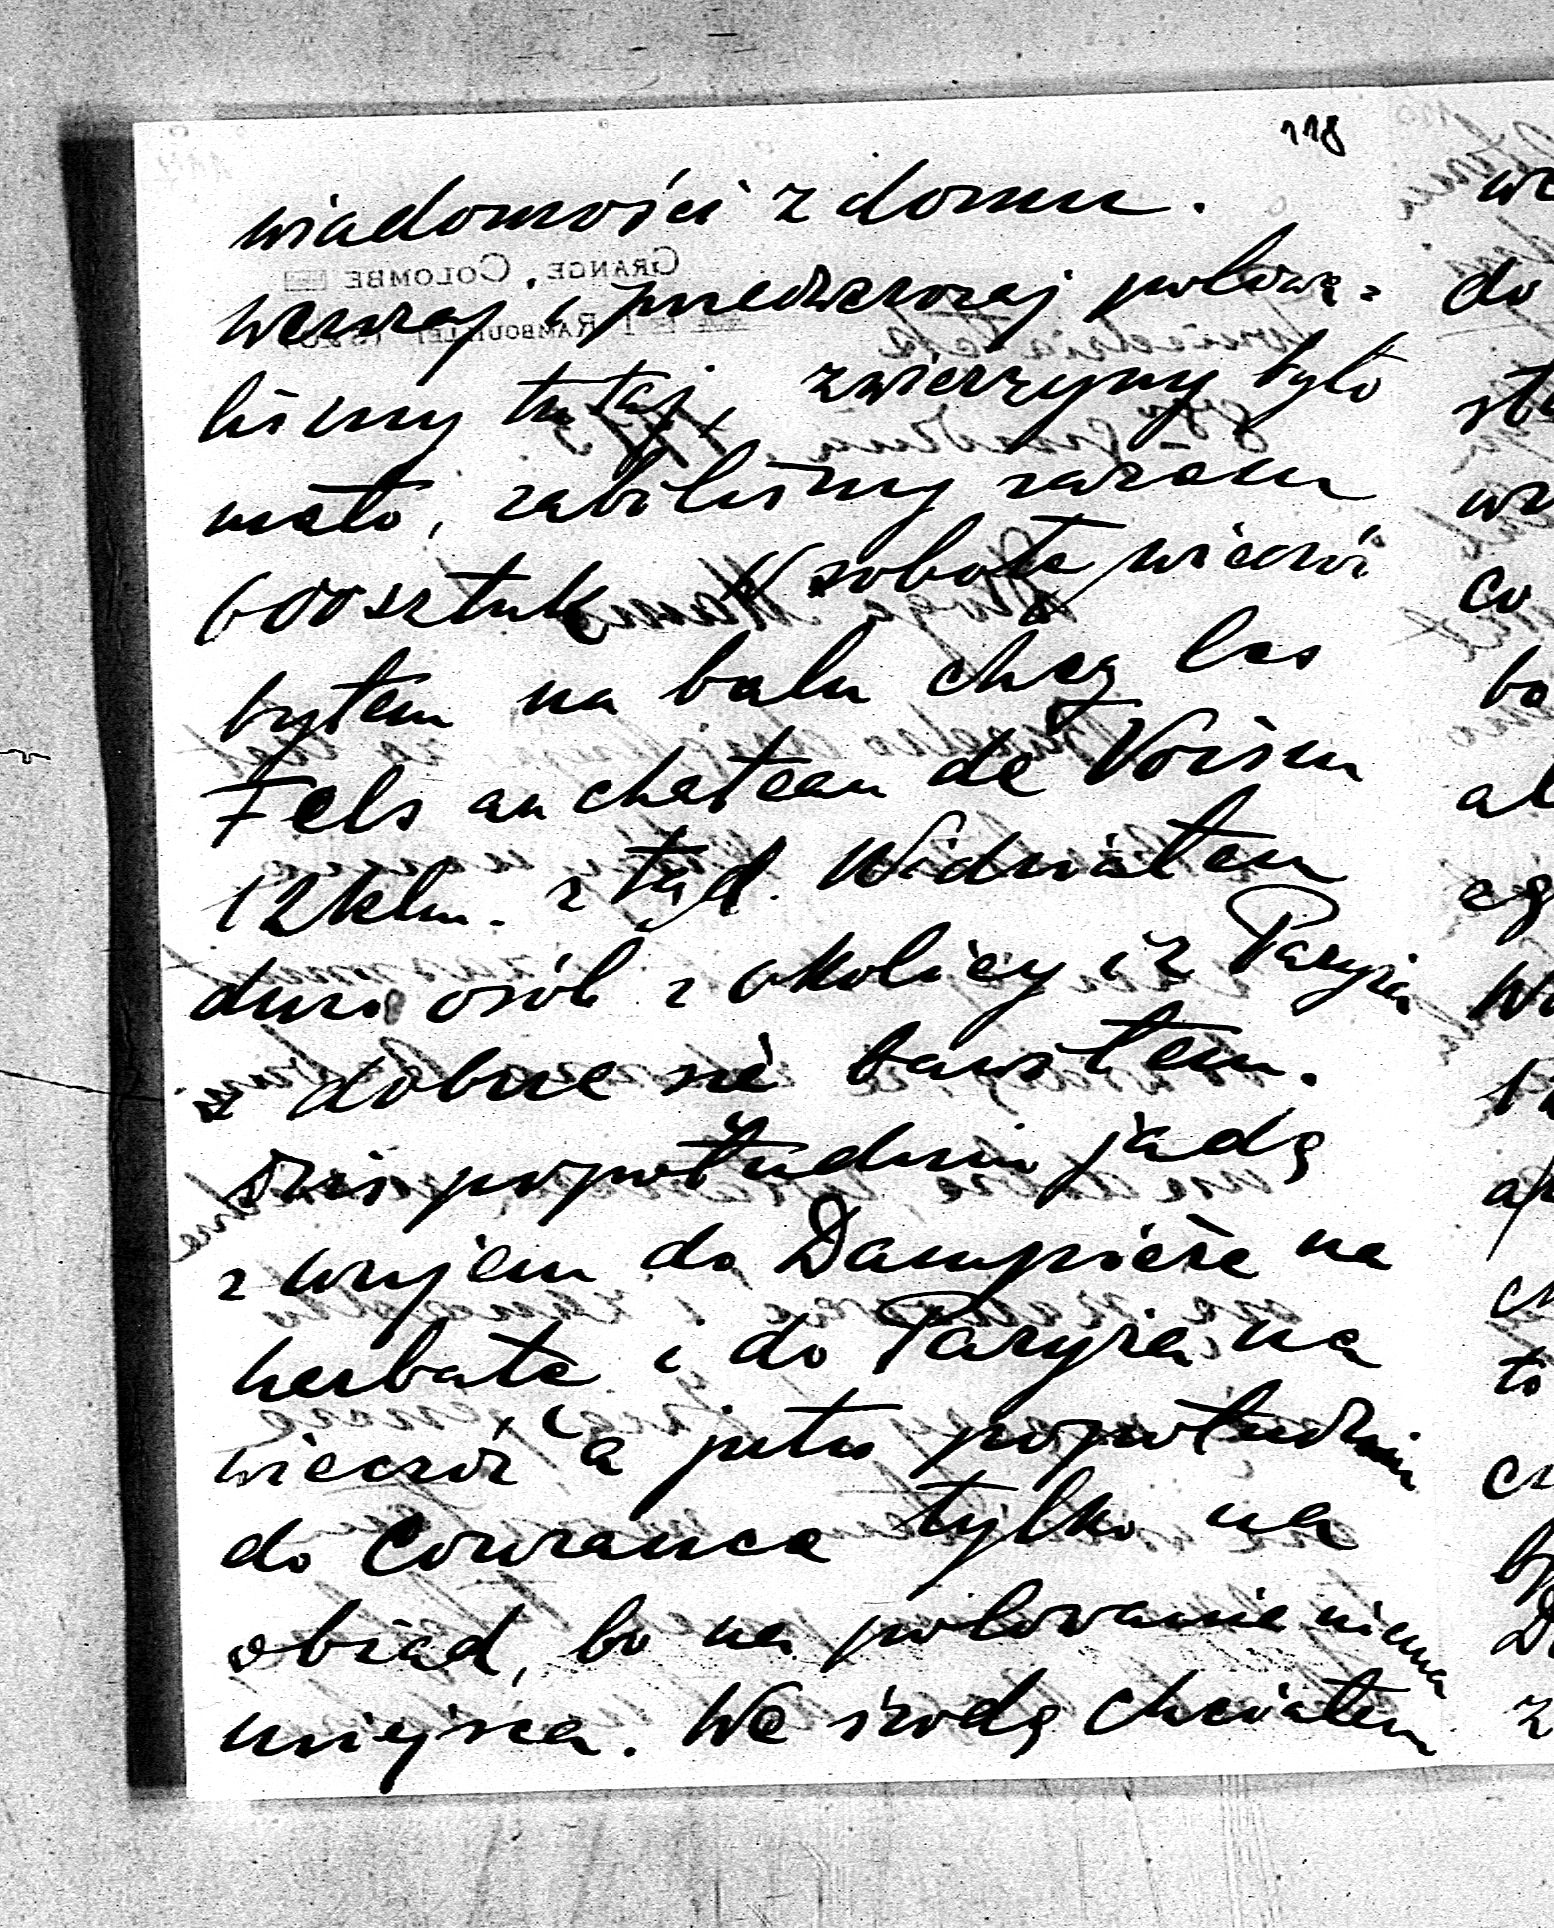 118
wiadomości z domu.
wczoraj i przedwczoraj polowa-
liśmy tutaj, zwierzyny było
mało, zabiliśmy razem
600 sztuk. W sobotę wieczór
byłem na balu chez les
Fels au chateau de Voisin
12 klm. z tąd. Widziałem
dużo osób z okolicy i z Paryża
i dobrze się bawiłem.
Dziś popołudniu jadę
z wujem do Dampière na
herbatę i do Paryża na
wieczór a jutro popołudniu
do Courance tylko na
obiad, bo na polowanie niema
miejsca. We środę chciałem